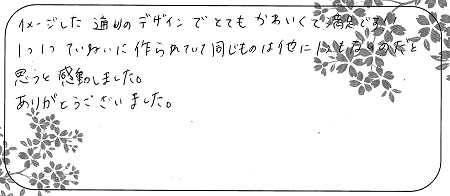 イメージした通りのデザインでとてもかわいくて満足です!!
1つ1つていねいに作られていて同じものは他に1つもないのだと
思うと感動しました。
ありがとうございました。